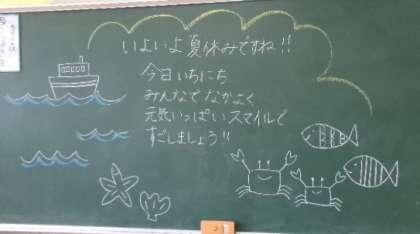 いよいよ夏休みですね!!
今日いちにち
みんなでなかよく
元気いっぱいスマイルで
すごしましょう!!